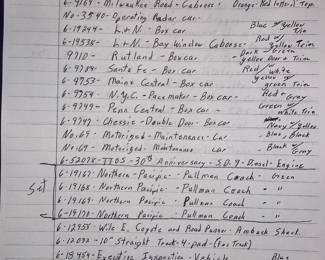 6-9169 - Milwaukee Road - Caboose - Orange - Red letters Top
No-3540-Operating Radar car- Blue w/ Yellow Trim
6-19244- L+N- Box car - Red w/ Yellow Trim
6-19538- L+N- Bay Window Caboose-
9710 - Rutland - Boxcar - Dark Green Yellow Door + Trim
6-9784- Santa Fe - Box car - Red w/ White
6-9753- Maine Central - Box car - Yellow w/ green Trim
6-9754- N.Y.C.- Pacemaker - Box car - Red + Gray
6-9749- Penn Central - Box car - Green w/ White Trim
6-9797- Chessie - Double Door - Boxcar - Navy w/ Yellow
No.69- Motorized - Maintenance - Car - Blue, Black
No-69 - Motorized - Maintenance car - Black w/ Gray
6-52078-TTOS-30th Anniversary - S.D.9- Diesel - Engine
Set
6-19167- Northern - Pacific - Pullman Coach - Green
6-19168- Northern Pacific - Pullman Coach - "
6-19169- Northern Pacific Pullman Coach - "
6-19170- Northern Pacific Pullman Coach - "
6-Wile E. Coyote and Road Runner - Ambush Shack
6-12092 - 10" Straight Track - 4-pad - (For Truck)
6-18454- Executive Inspection - Vehicle Blue